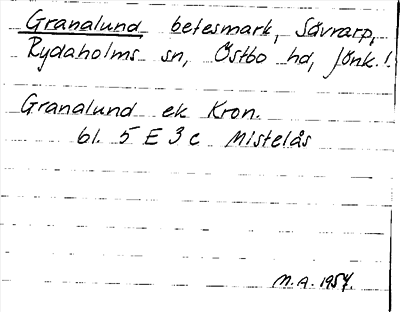 Granalund betesmark, Sävrarp,
Rydaholms sn, Östbo hd, Jönk. l.
Granalund ek Kron.
bl. 5 E 3 c Mistelås
M.A. 1957.